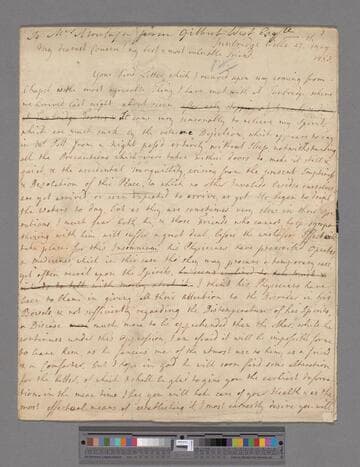 To Mrs Montagu from Gilbert West Esqre
Tunbridge Wells 27 May
1753
My dearest Cousin my best & most valuable Friend
Your kind Letter, which I received upon my coming from
Chapel is the most agreeable Thing I have met with at Tunbridge, where
we arrived last night about seven
it came very seasonably to relieve my Spirits
which are much sunk by the extreme Dejection which appears to day
in Mr Pitt from a night pass'd entirely without Sleep, notwithstanding
all the Precautions which were taken within doors to make it still &
quiet & the accidental Tranquillity arising from the present Emptiness
& Desolation of this Place, to which no other Invalids besides ourselves
are yet arrived or even expected to arrive as yet. He began to drink
the Waters to day, but as they are sometimes very slow in their Ope-
rations, I much fear both he & those Friends who cannot help sympa-
thizing with him will suffer a great deal before the wish'd for Effect will
take place. for this Insomnium his Physicians have prescribed Opiates
a medicine which in this case tho' they may procure a temporary ease
yet often recoil upon the Spirits,
I think his Physicians have
been to blame in giving all their attention to the Disorder in his
Bowels & not sufficiently regarding the Distemperature of his Spirits,
a Disease much more to be apprehended than the other, while he
continues under this Oppression, I am afraid it will be impossible for me
to leave him as he fancies me of the utmost use to him as a friend
& a Comforter, but I hope in God he will soon find some alteration
for the better, of which I shall be glad to give you the earliest Informa-
tion, in the mean time I beg you will take care of your Health & as the
most effectual means of establishing it I most earnestly desire you will